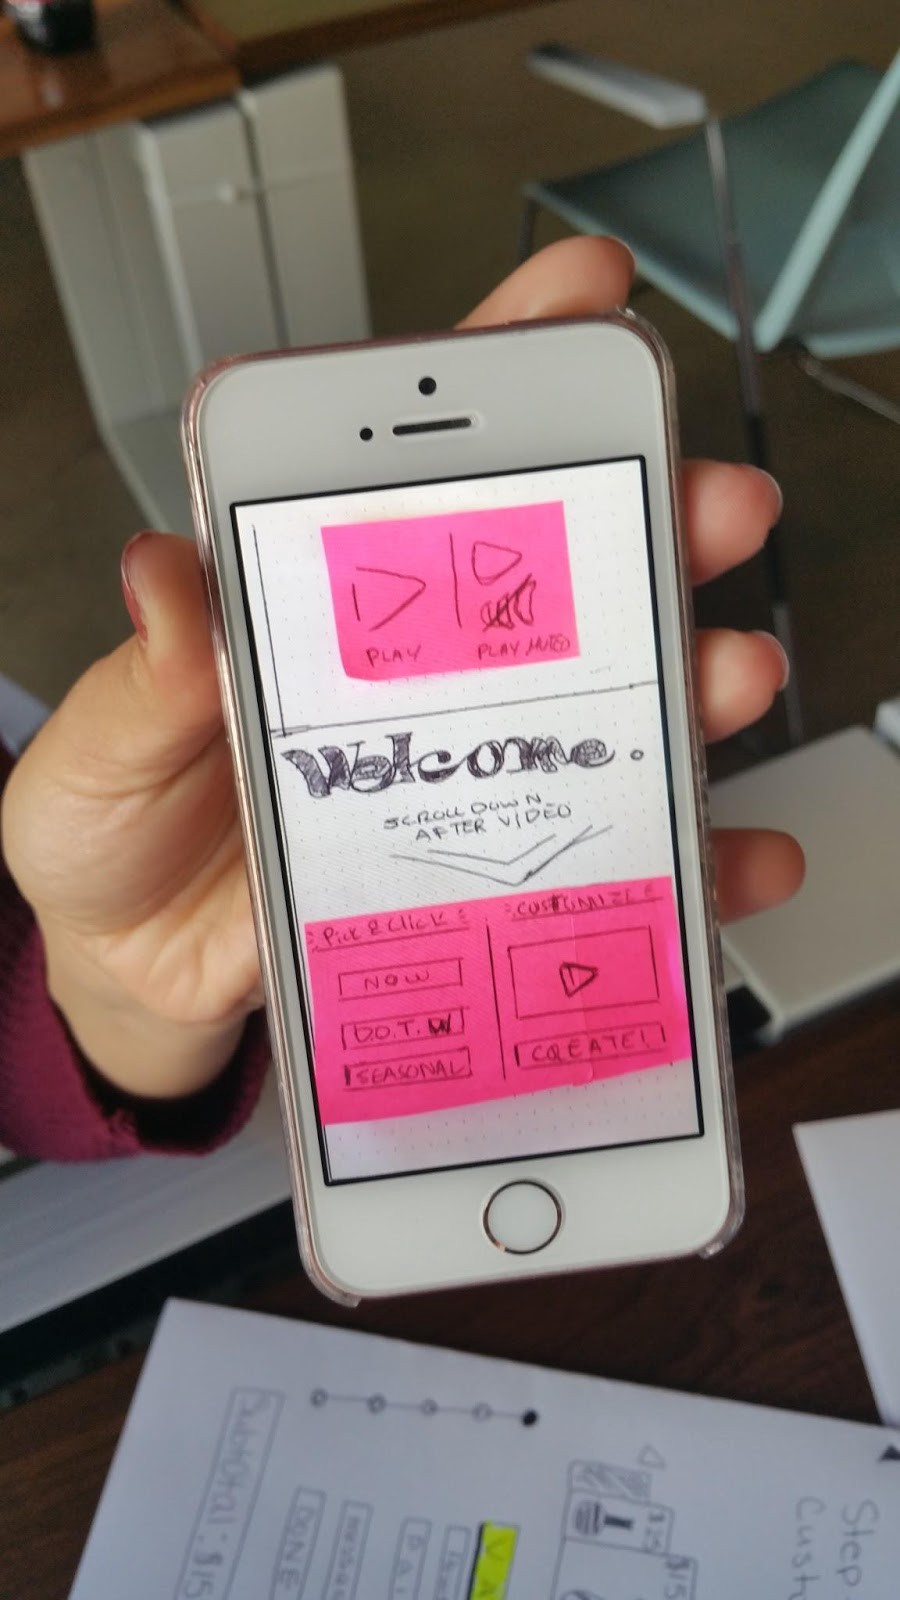 PLAY
PLAY MUTED
Welcome.
SCROLL DOWN
AFTER VIDEO
Pick & Click
NOW
D.O.T.W
SEASONAL
CUSTOMIZE
CREATE!
Subtotal: $15
DONE
$15
Step
Custo